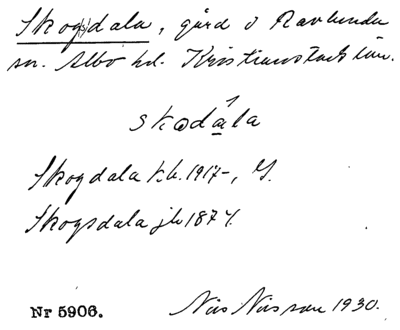 Skog(s)dala, gård i Ravlunda
sn. Albo hd. Kristianstads län.
skodala
Skogdala kb. 1917-, G.
Skogsdala jb 1874.
Nr 5906. Nils Nilsson 1930.